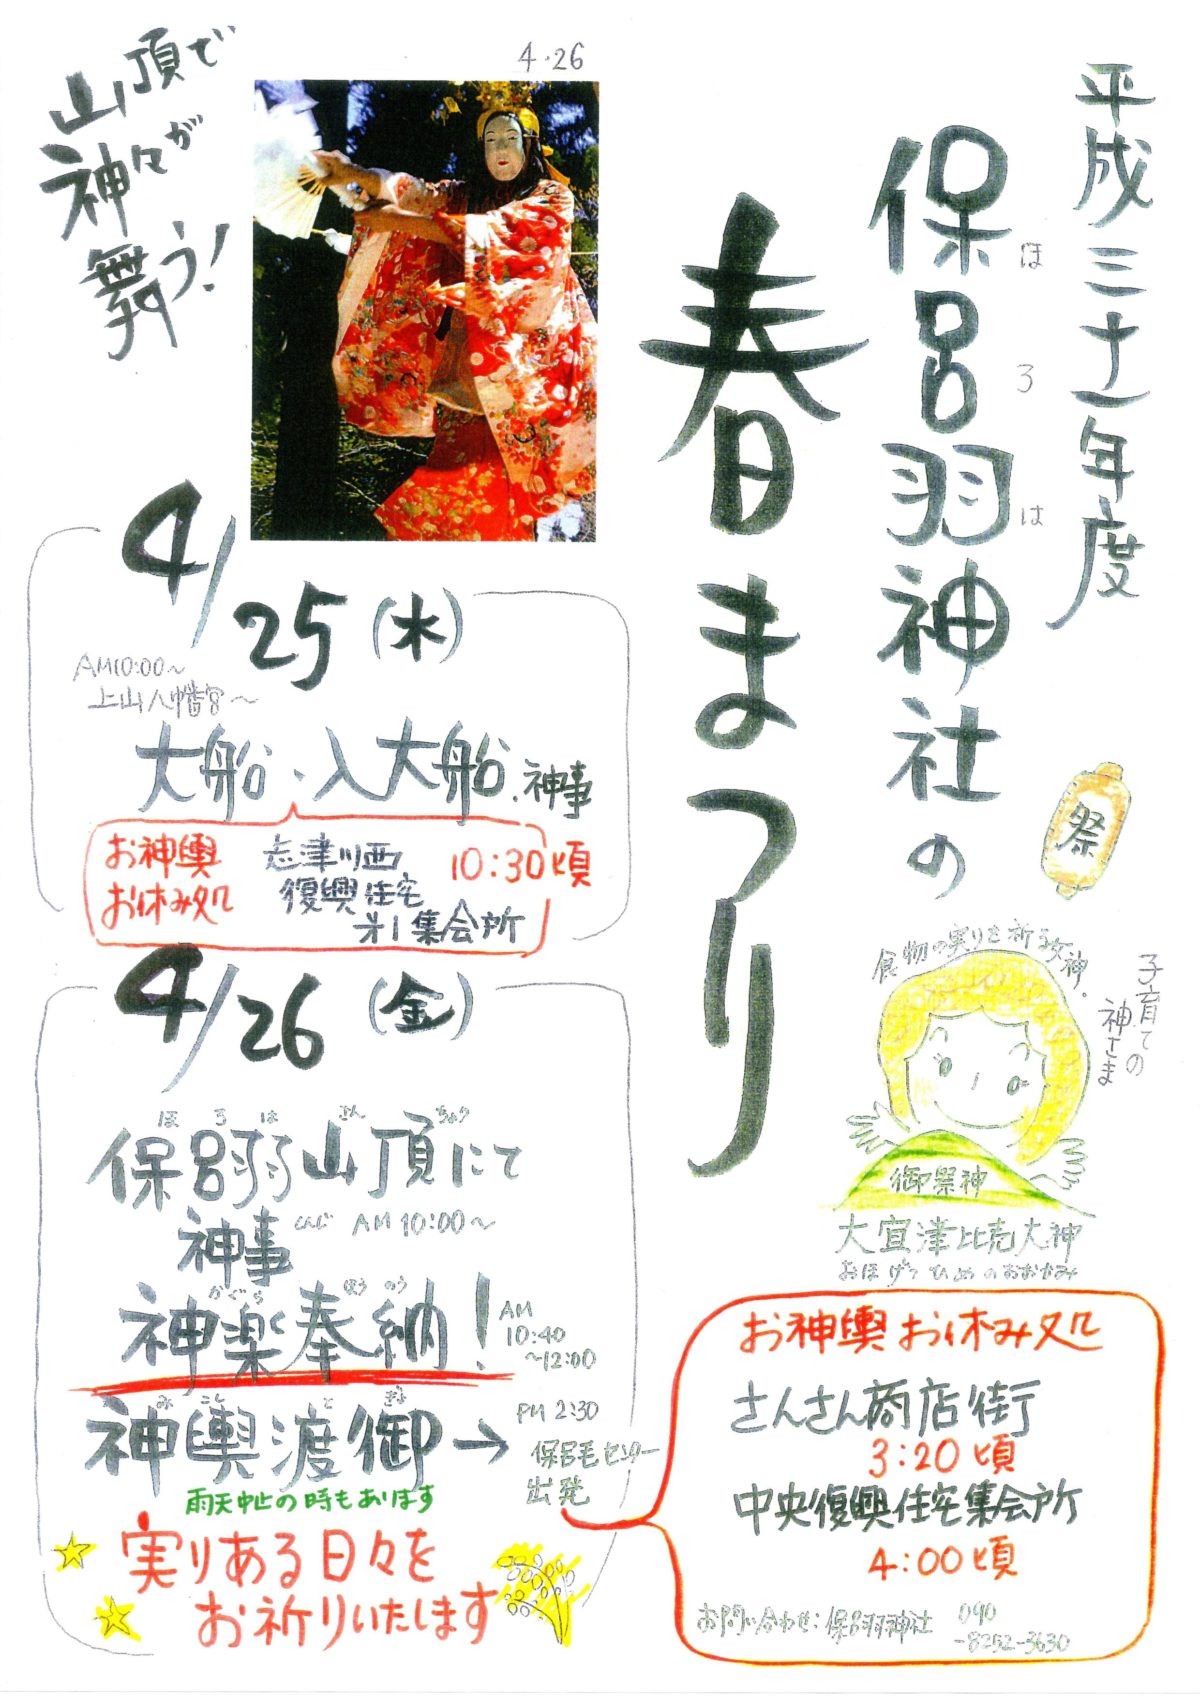 平成三十一年度
保呂羽神社の
ほろは
春まつり
4・26
山頂で
神々が
舞う！
祭
4/25(木)
AM10:00〜
上山八幡宮〜
大船・入大船・神事
お神輿
お休み処
志津川西
復興住宅
第1集会所
10:30頃
4/26(金)
ほろは さんちょう
保呂羽山頂にて
神事 しんじ AM10:00〜
かぐら ほうのう
神楽奉納！
AM
10:40
〜12:00
みこし とぎょ
神輿渡御→
PM 2:30
保呂毛センター
出発
雨天中止の時もあります
実りある日々を
お祈りいたします
食物の実りを祈る女神・
子育ての
神さま
御祭神
大宜津比売大神
おほげつひめのおおかみ
お神輿お休み処
さんさん商店街
3:20頃
中央復興住宅集会所
4:00頃
お問い合わせ：保呂羽神社
090
-8252-3630